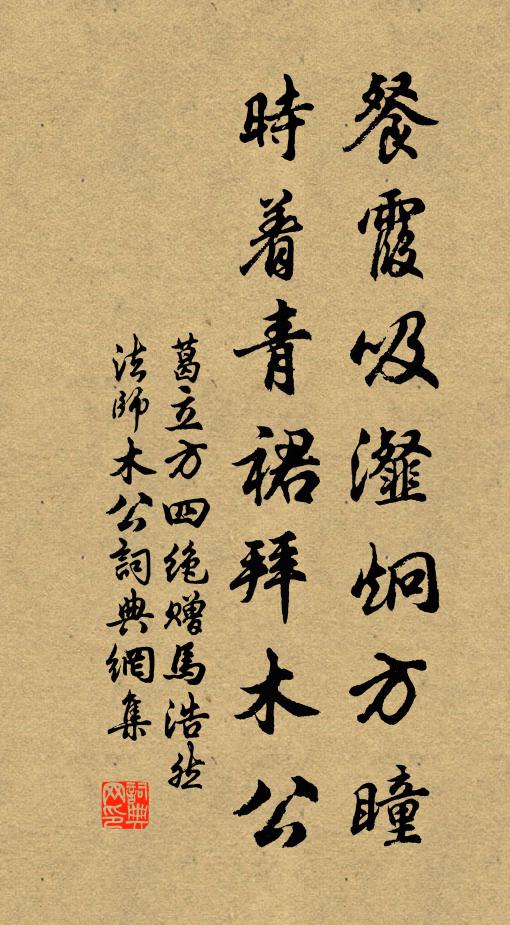 餐霞吸瀣炯方瞳
時着青裙拜木公
葛立方四絶贈馬浩然
法師木公詞典網集
詞典网印